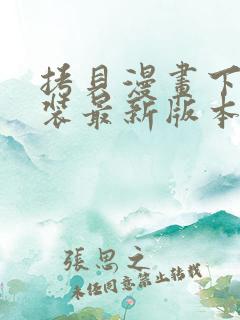 拷貝漫畫下
裝最新版本
張思之
未经同意禁止转载